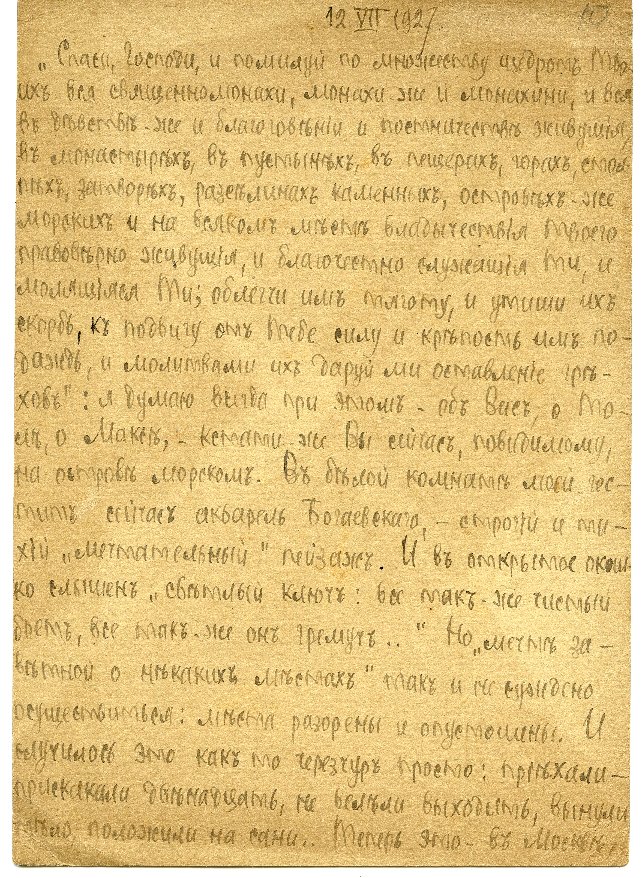 12 VII 1927.
„Спаси, Господи, и помилуй по множеству щедротъ Тво-
ихъ вся священномонахи, монахи же и монахини, и вся
въ дѣвствѣ-же и благоговѣніи и постничествѣ живущія,
въ монастырѣхъ, въ пустынѣхъ, въ пещерахъ, горахъ, стол-
пѣхъ, затворѣхъ, разсѣлинахъ каменныхъ, островѣхъ-же
морскихъ и на всякомъ мѣстѣ владычествія Твоего
правовѣрно живущія, и благочестно служащія Ти, и
молящіяся Ти; облегчи имъ тяготу, и утиши ихъ
скорбь, къ подвигу отъ Тебе силу и крѣпость имъ по-
даждь, и молитвами ихъ даруй ми оставленіе грѣ-
ховъ": я думаю всегда при этомъ - объ Васъ, о То-
мъ, о Максѣ, - кстати-же Вы сейчасъ, повидимому,
на островѣ морскомъ. Въ бѣлой комнатѣ моей гос-
титъ сейчасъ акварель Богаевскаго, - строгій и ти-
хій „мечтательный" пейзажъ. И въ открытое окош-
ко слышенъ „свѣтлый ключъ: все такъ-же чистый
бьетъ, все такъ-же онъ гремучъ.." Но „мечтѣ за-
вѣтной о нѣкакихъ мѣстахъ" такъ и не суждено
осуществиться: мѣста разорены и опустошены. И
случилось это какъ то черезчуръ просто: пріѣхали-
прискакали двѣнадцать, не велѣли выходить, вынули
тѣло положили на сани.. Теперь это - въ Москвѣ,